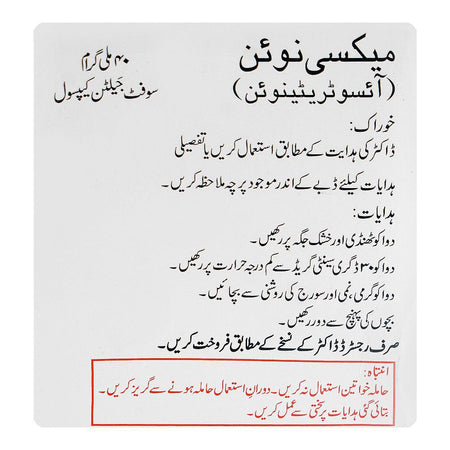 میکسی نوئن
۴۰ ملی گرام
(آئسوٹریٹینوئن)
سوفٹ جیلٹن کیپسول
خوراک:
ڈاکٹر کی ہدایت کے مطابق استعمال کریں یا تفصیلی
ہدایات کیلئے ڈبے کے اندر موجود پرچہ ملاحظہ کریں۔
ہدایات:
دوا کو ٹھنڈی اور خشک جگہ پر رکھیں۔
دوا کو ۳۰ ڈگری سینٹی گریڈ سے کم درجہ حرارت پر رکھیں۔
دوا کو گرمی، نمی اور سورج کی روشنی سے بچائیں۔
بچوں کی پہنچ سے دور رکھیں۔
صرف رجسٹرڈ ڈاکٹر کے نسخے کے مطابق فروخت کریں۔
انتباہ:
حاملہ خواتین استعمال نہ کریں۔ دوران استعمال حاملہ ہونے سے گریز کریں۔
بتائی گئی ہدایات پر سختی سے عمل کریں۔